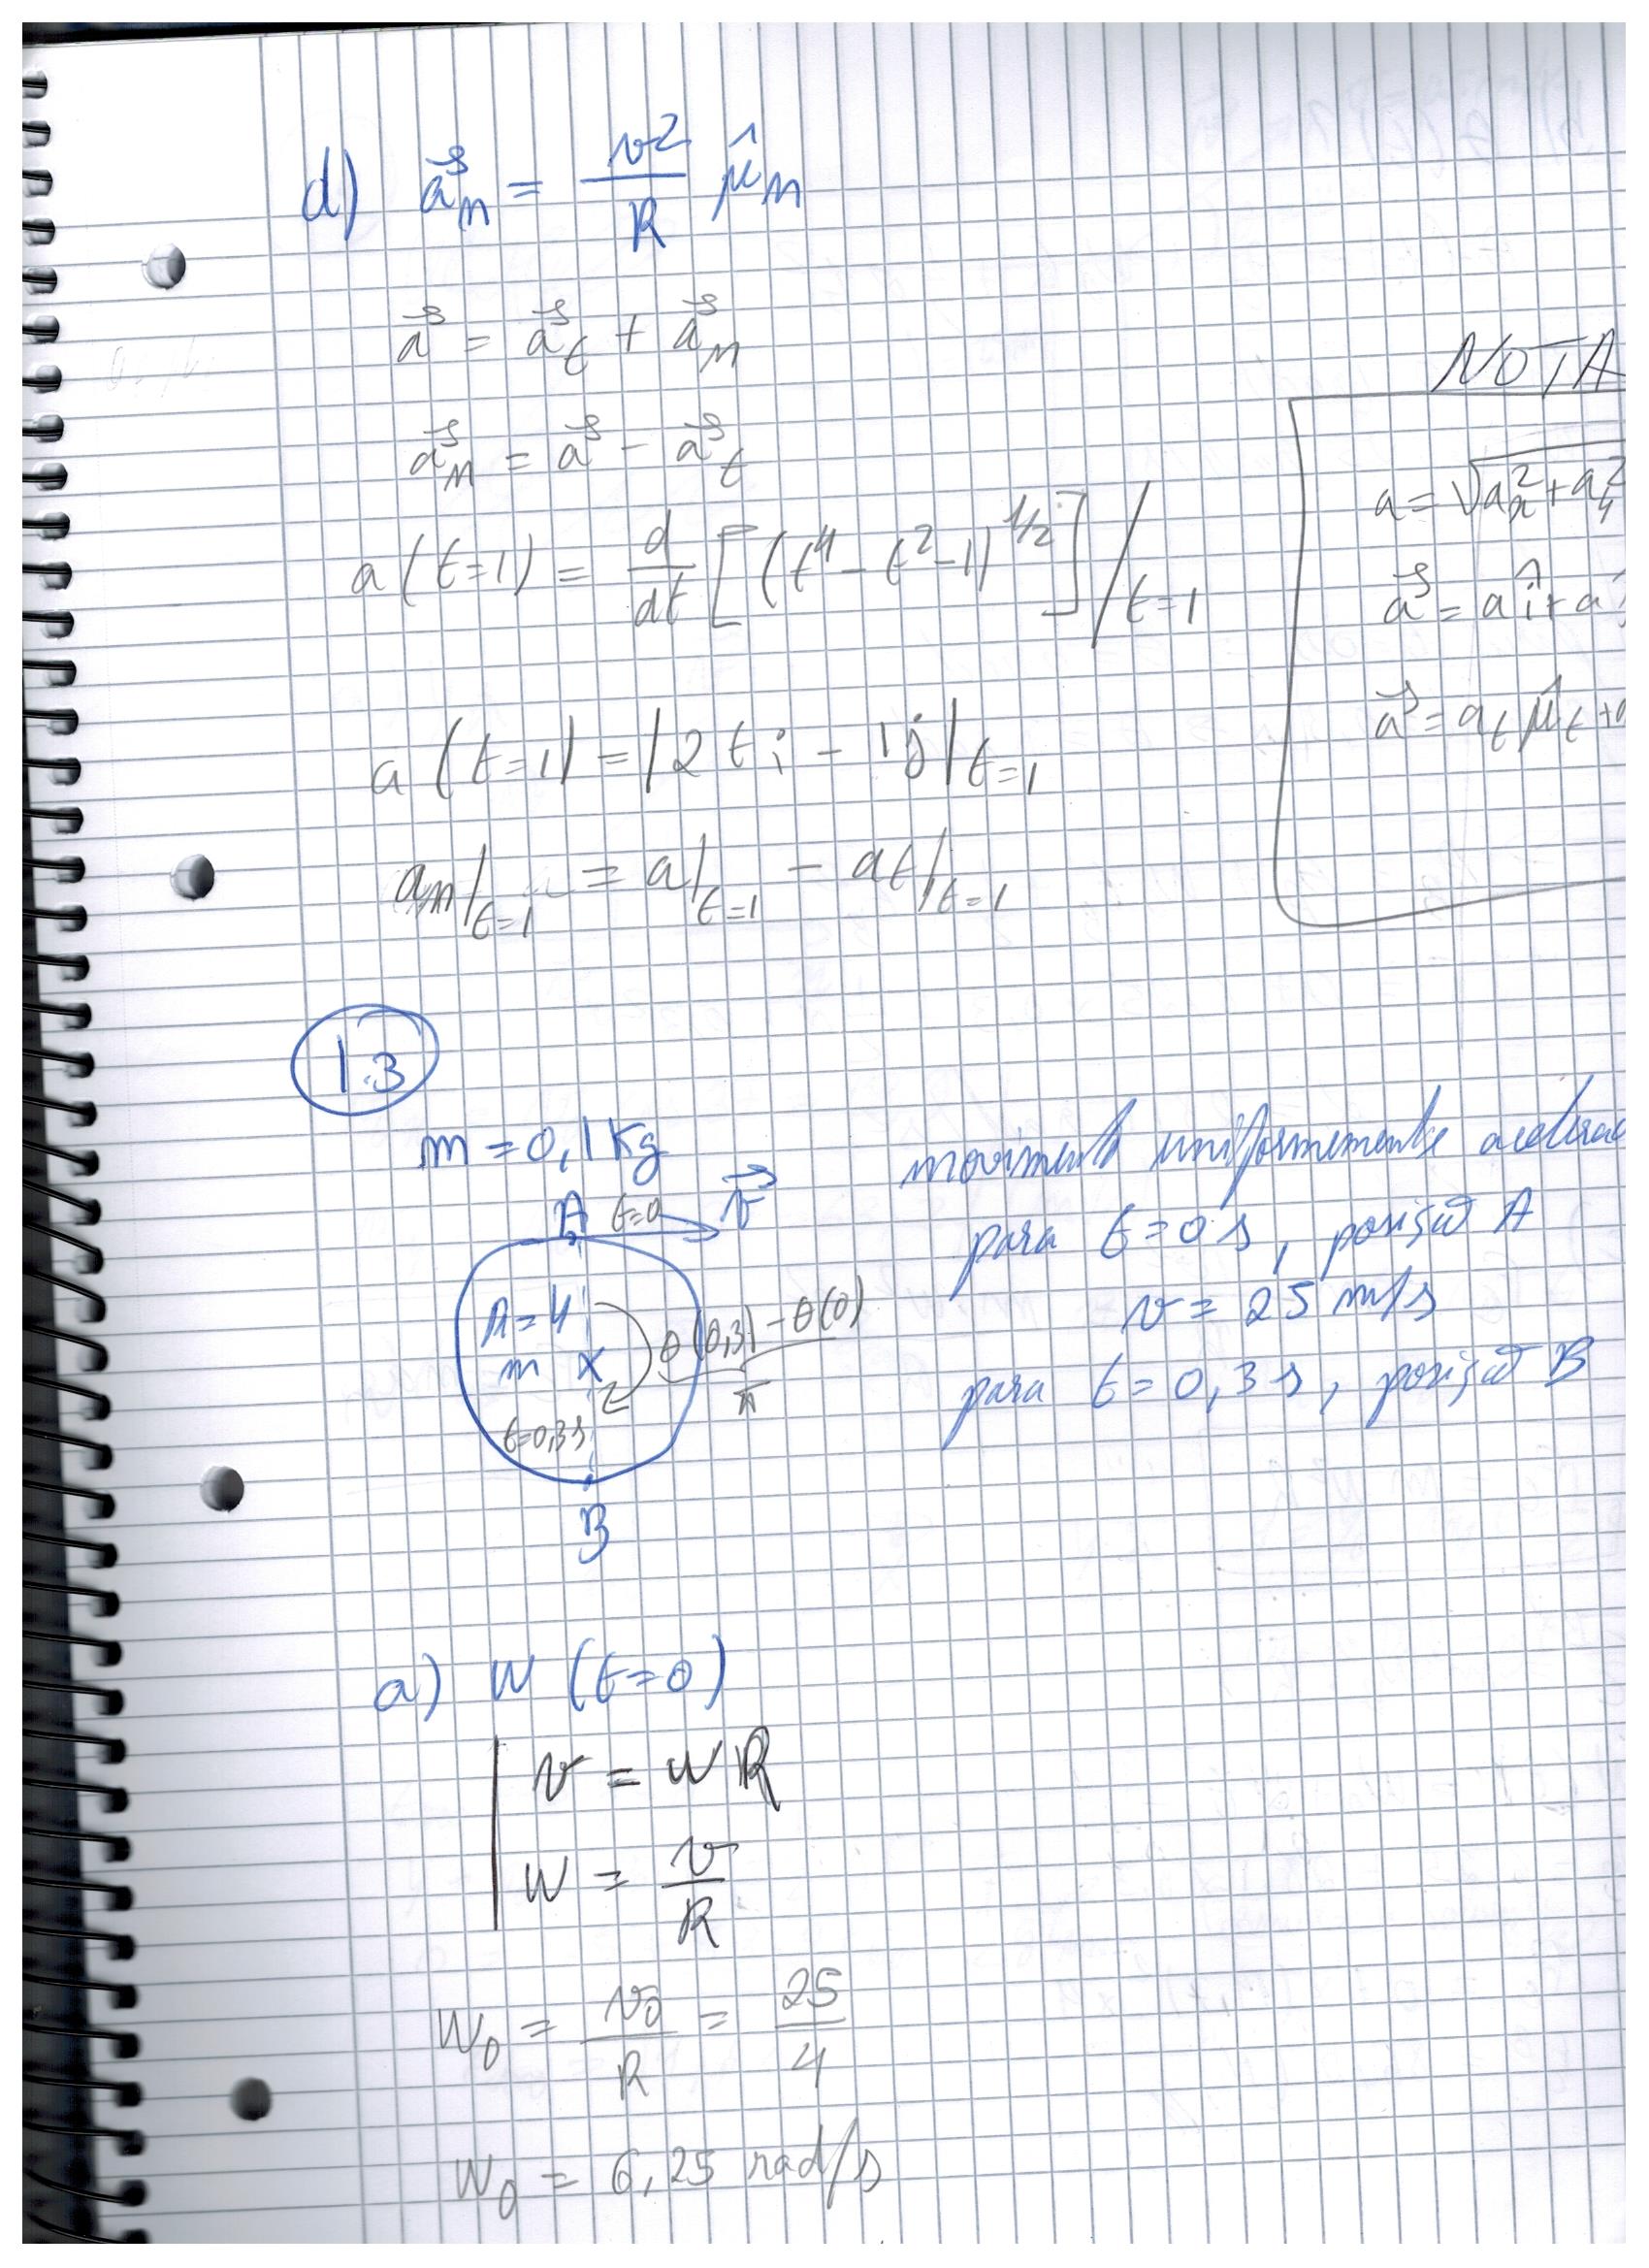 d) a⃗n = v²/R μ̂n
a⃗ = a⃗t + a⃗n
a⃗n = a⃗ - a⃗t
a(t=1) = d/dt [(t⁴ - t² - 1)^1/2] / t=1
a(t=1) = |2ti - 1j| t=1
an|t=1 = a|t=1 - at|t=1
NOTA
a = √ax² + ay²
a⃗ = a î + a
a⃗ = at μ̂t +
1.3
m = 0,1 Kg
A t=0 v⃗
R = 4
m X
θ(0,3) - θ(0)
π
t=0,3s
B
movimento uniformemente acelerad
para t = 0 s, posição A
v = 25 m/s
para t = 0,3 s, posição B
a) W (t=0)
v = W R
W = v/R
W0 = v0/R = 25/4
W0 = 6,25 rad/s